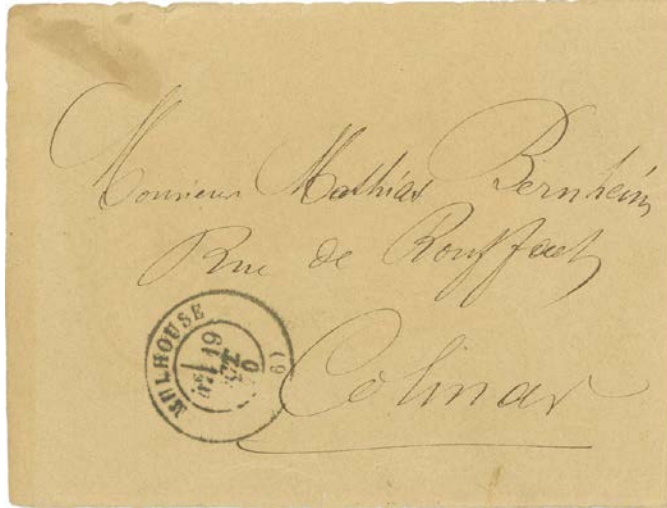 Monsieur Mathias Bernheim
Rue de Rouffach
Colmar
MULHOUSE
19